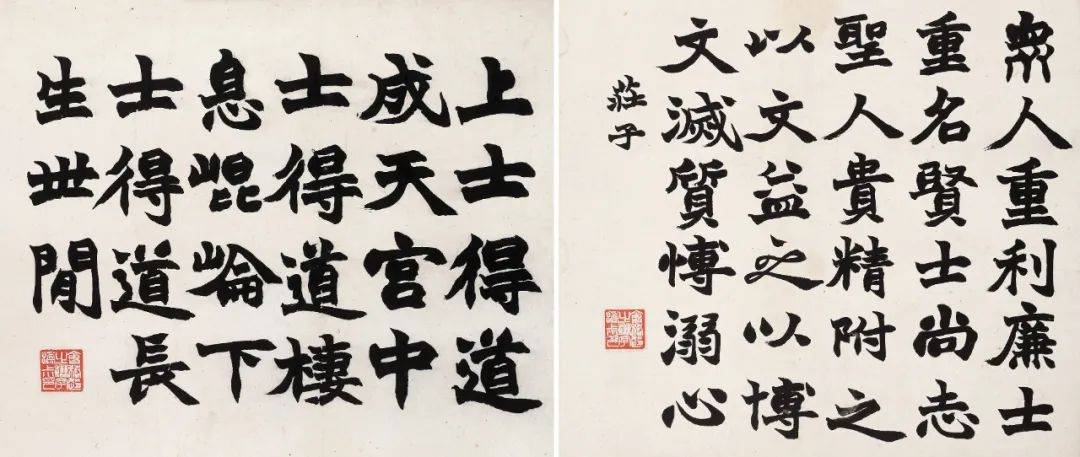 上士得道
成天宮中
士得道棲
息崐崘下
士得道長
生世閒
衆人重利廉士
重名賢士尚志
聖人貴精附之
以文益之以博
文滅質愽溺心
莊子